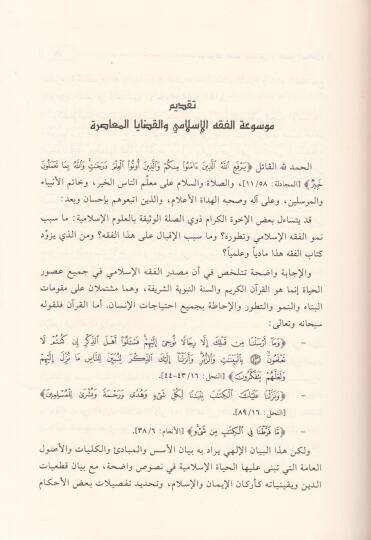 تقديم
موسوعة الفقه الإسلامي والقضايا المعاصرة
الحمد لله القائل ﴿يَرْفَعِ اللَّهُ الَّذِينَ ءَامَنُوا مِنكُمْ وَالَّذِينَ أُوتُوا الْعِلْمَ دَرَجَٰتٍ وَاللَّهُ بِمَا تَعْمَلُونَ
خَبِيرٌ﴾ [المجادلة: ١١/٥٨]، والصلاة والسلام على معلّم الناس الخير، وخاتم الأنبياء
والمرسلين، وعلى آله وصحبه الهداة الأعلام، والذين اتبعوهم بإحسان وبعد:
قد يتساءل بعض الإخوة الكرام ذوي الصلة الوثيقة بالعلوم الإسلامية: ما سبب
نمو الفقه الإسلامي وتطوره؟ وما سبب الإقبال على هذا الفقه؟ ومن الذي يزوّد
كتاب الفقه هذا مادياً وعلمياً؟
والإجابة واضحة تتلخص في أن مصدر الفقه الإسلامي في جميع عصور
الحياة إنما هو القرآن الكريم والسنة النبوية الشريفة، وهما مشتملان على مقومات
البناء والنمو والتطور والإحاطة بجميع احتياجات الإنسان. أما القرآن فلقوله
سبحانه وتعالى:
- ﴿وَمَا أَرْسَلْنَا مِن قَبْلِكَ إِلَّا رِجَالًا نُّوحِي إِلَيْهِمْ فَسْـَٔلُوا أَهْلَ الذِّكْرِ إِن كُنتُمْ لَا
تَعْلَمُونَ ۝ بِالْبَيِّنَٰتِ وَالزُّبُرِ وَأَنزَلْنَا إِلَيْكَ الذِّكْرَ لِتُبَيِّنَ لِلنَّاسِ مَا نُزِّلَ إِلَيْهِمْ
وَلَعَلَّهُمْ يَتَفَكَّرُونَ﴾ [النحل: ٤٣/١٦-٤٤].
- ﴿وَنَزَّلْنَا عَلَيْكَ الْكِتَٰبَ تِبْيَٰنًا لِّكُلِّ شَيْءٍ وَهُدًى وَرَحْمَةً وَبُشْرَىٰ لِلْمُسْلِمِينَ﴾
[النحل: ٨٩/١٦].
- ﴿مَّا فَرَّطْنَا فِي الْكِتَٰبِ مِن شَيْءٍ﴾ [الأنعام: ٣٨/٦].
ولكن هذا البيان الإلهي يراد به بيان الأسس والمبادئ والكليات والأصول
العامة التي تبنى عليها الحياة الإسلامية في نصوص واضحة، مع بيان قطعيات
الدين ويقينياته كأركان الإيمان والإسلام، وتحديد تفصيلات بعض الأحكام